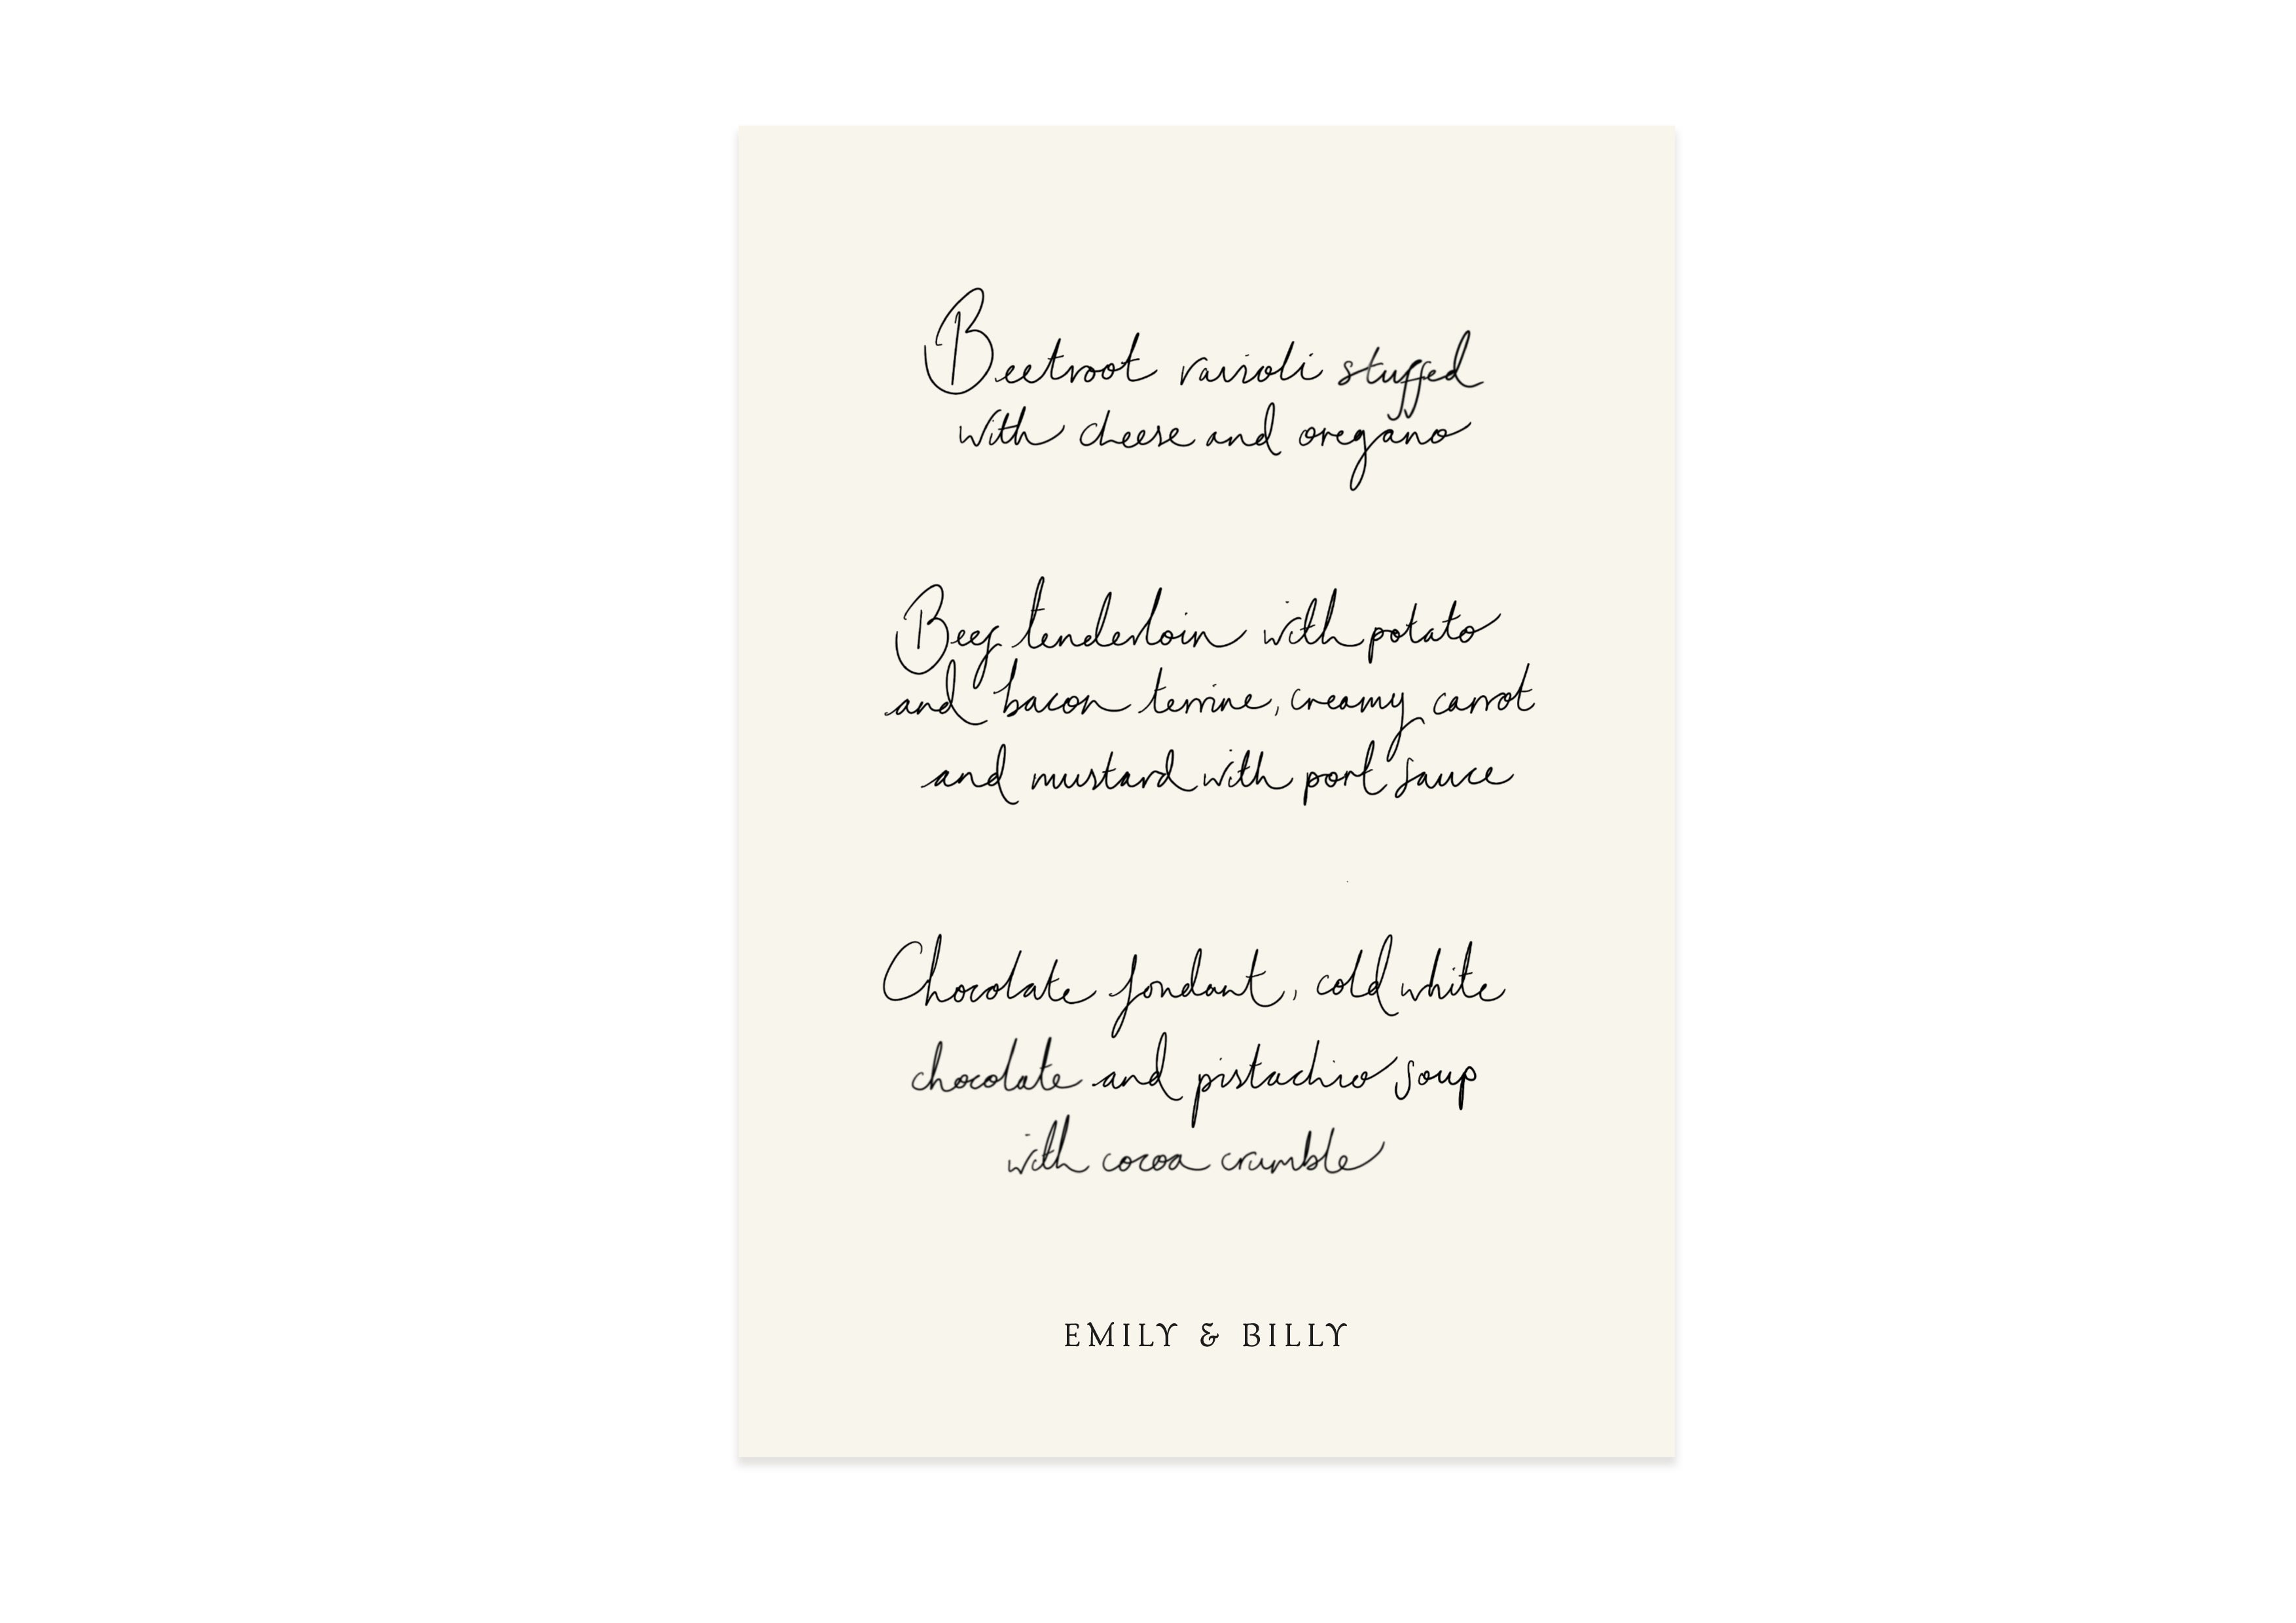 Beetroot ravioli stuffed
with cheese and oregano
Beef tenderloin with potato
and bacon terrine, creamy carrot
and mustard with port sauce
Chocolate fondant, cold white
chocolate and pistachio soup
with cocoa crumble
EMILY & BILLY